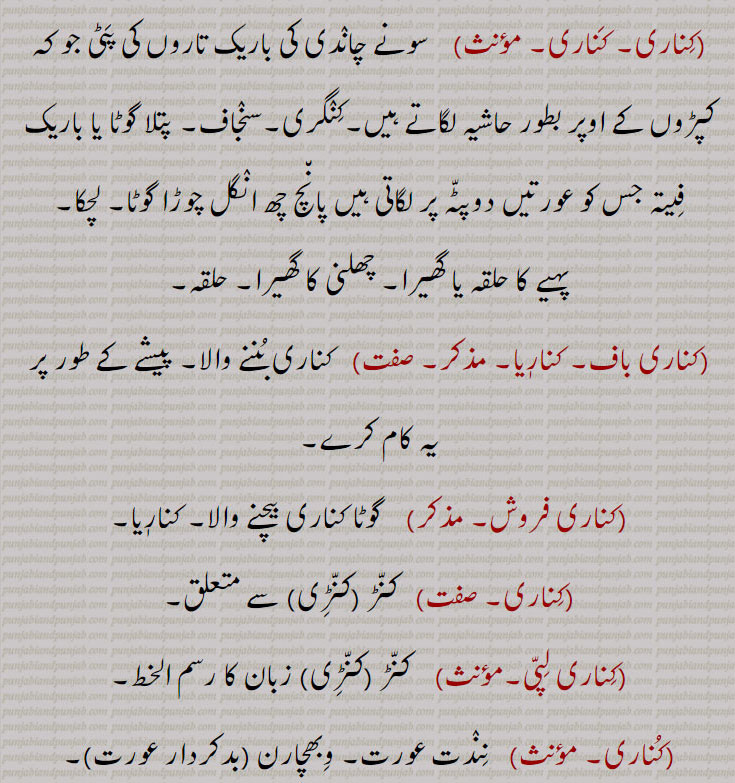 (کِناری۔ کَناری۔ مؤنث) سونے چانْدی کی باریک تاروں کی پَٹی جو کہ
کپڑوں کے اوپر بطور حاشیہ لگاتے ہیں۔ کِنْگری۔ سنْجاف۔ پتلا گوٹا یا باریک
فِیتہ جس کو عورتیں دوپٹّہ پر لگاتی ہیں پانْچ چھ انْگل چوڑا گوٹا۔ لچکا۔
پہیے کا حلقہ یا گھیرا۔ چھلنی کا گھیرا۔ حلقہ۔
(کناری باف۔ کنارِیا۔ مذکر۔ صفت) کناری بُننے والا۔ پیشے کے طور پر
یہ کام کرے۔
(کناری فروش۔ مذکر) گوٹا کناری بیچنے والا۔ کنارِیا۔
(کِناری۔ صفت) کنّڑ (کنّڑِی) سے متعلق۔
(کِناری لِپّی۔ مؤنث) کنّڑ (کنّڑِی) زبان کا رسم الخط۔
(کُناری۔ مؤنث) نِنْدْت عورت۔ وِبھچارن (بدکردار عورت)۔